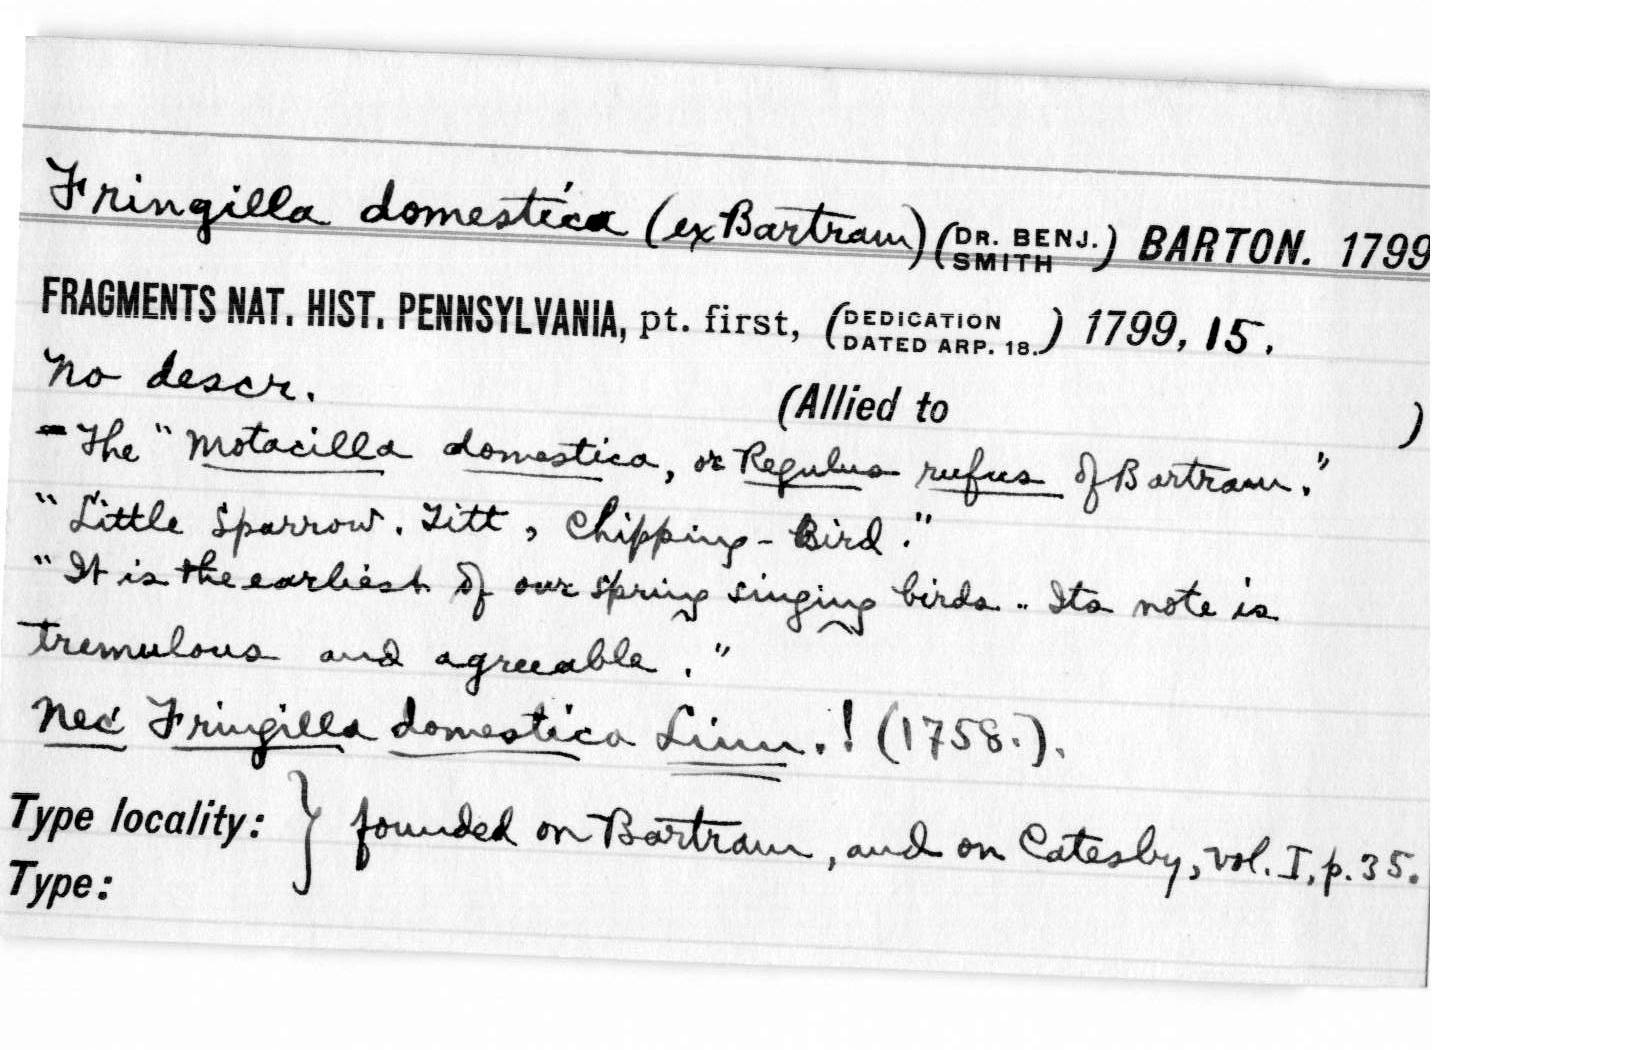 Fringilla domestica (ex Bartram) (DR. BENJ. SMITH) BARTON. 1799
FRAGMENTS NAT. HIST. PENNSYLVANIA, pt. first, (DEDICATION DATED ARP. 18.) 1799, 15.
No descr. (Allied to )
- The "Motacilla domestica, or Regulus rufus of Bartram."
"Little Sparrow. Titt, Chipping-Bird."
"It is the earliest of our spring singing birds .. Its note is
tremulous and agreeable."
Nec Fringilla domestica Linn.! (1758.).
Type locality: } founded on Bartram, and on Catesby, vol. I, p. 35.
Type: